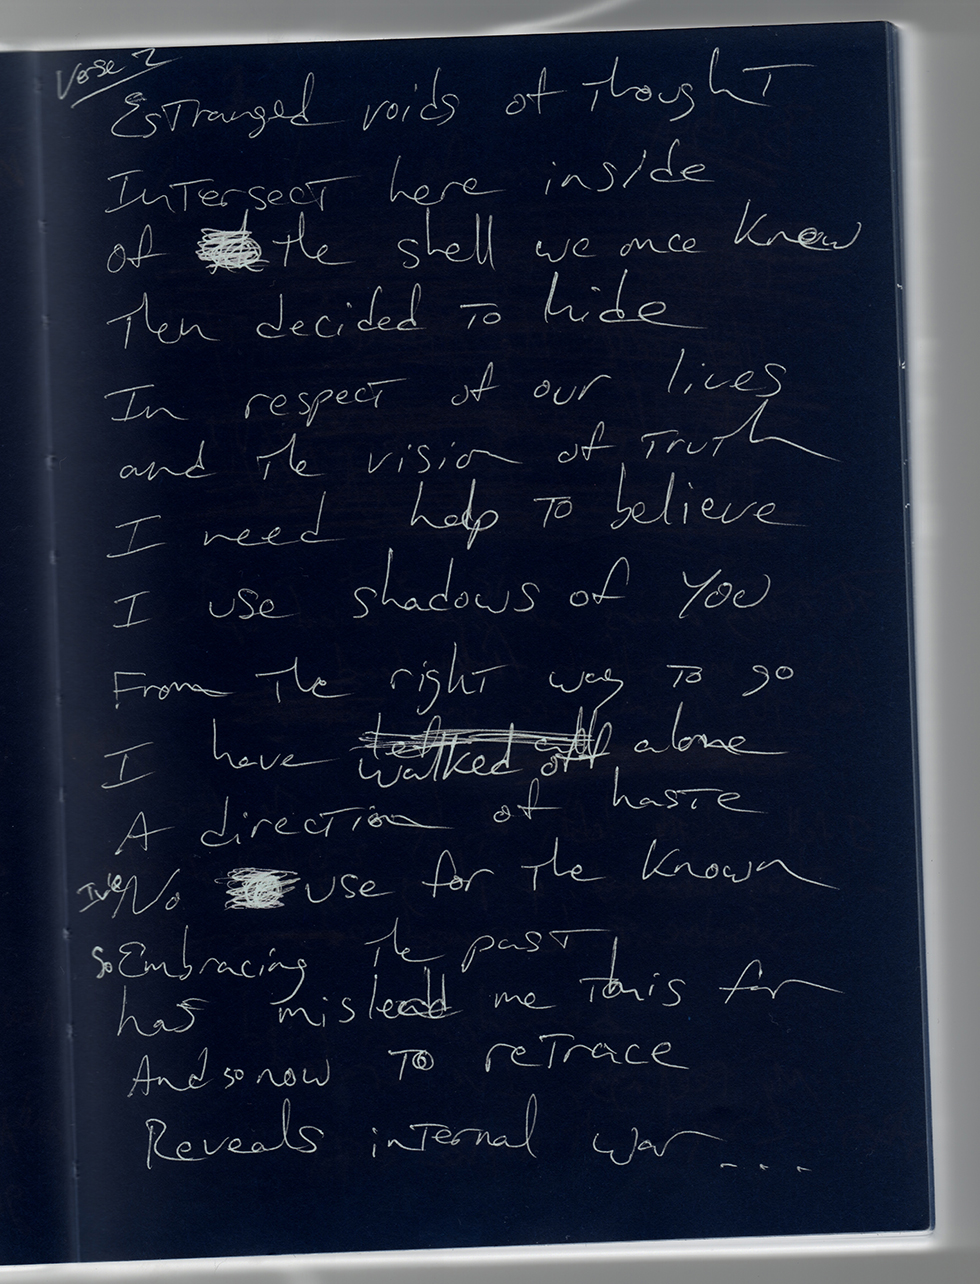 Verse 2
Estranged voids of thought
Intersect here inside
of the shell we once knew
Then decided to hide
In respect of our lives
and the vision of truth
I need help to believe
I use shadows of you
From the right way to go
I have walked off alone
A direction of haste
I've No use for the known
So Embracing the past
has mislead me this far
And so now to retrace
Reveals internal war ....